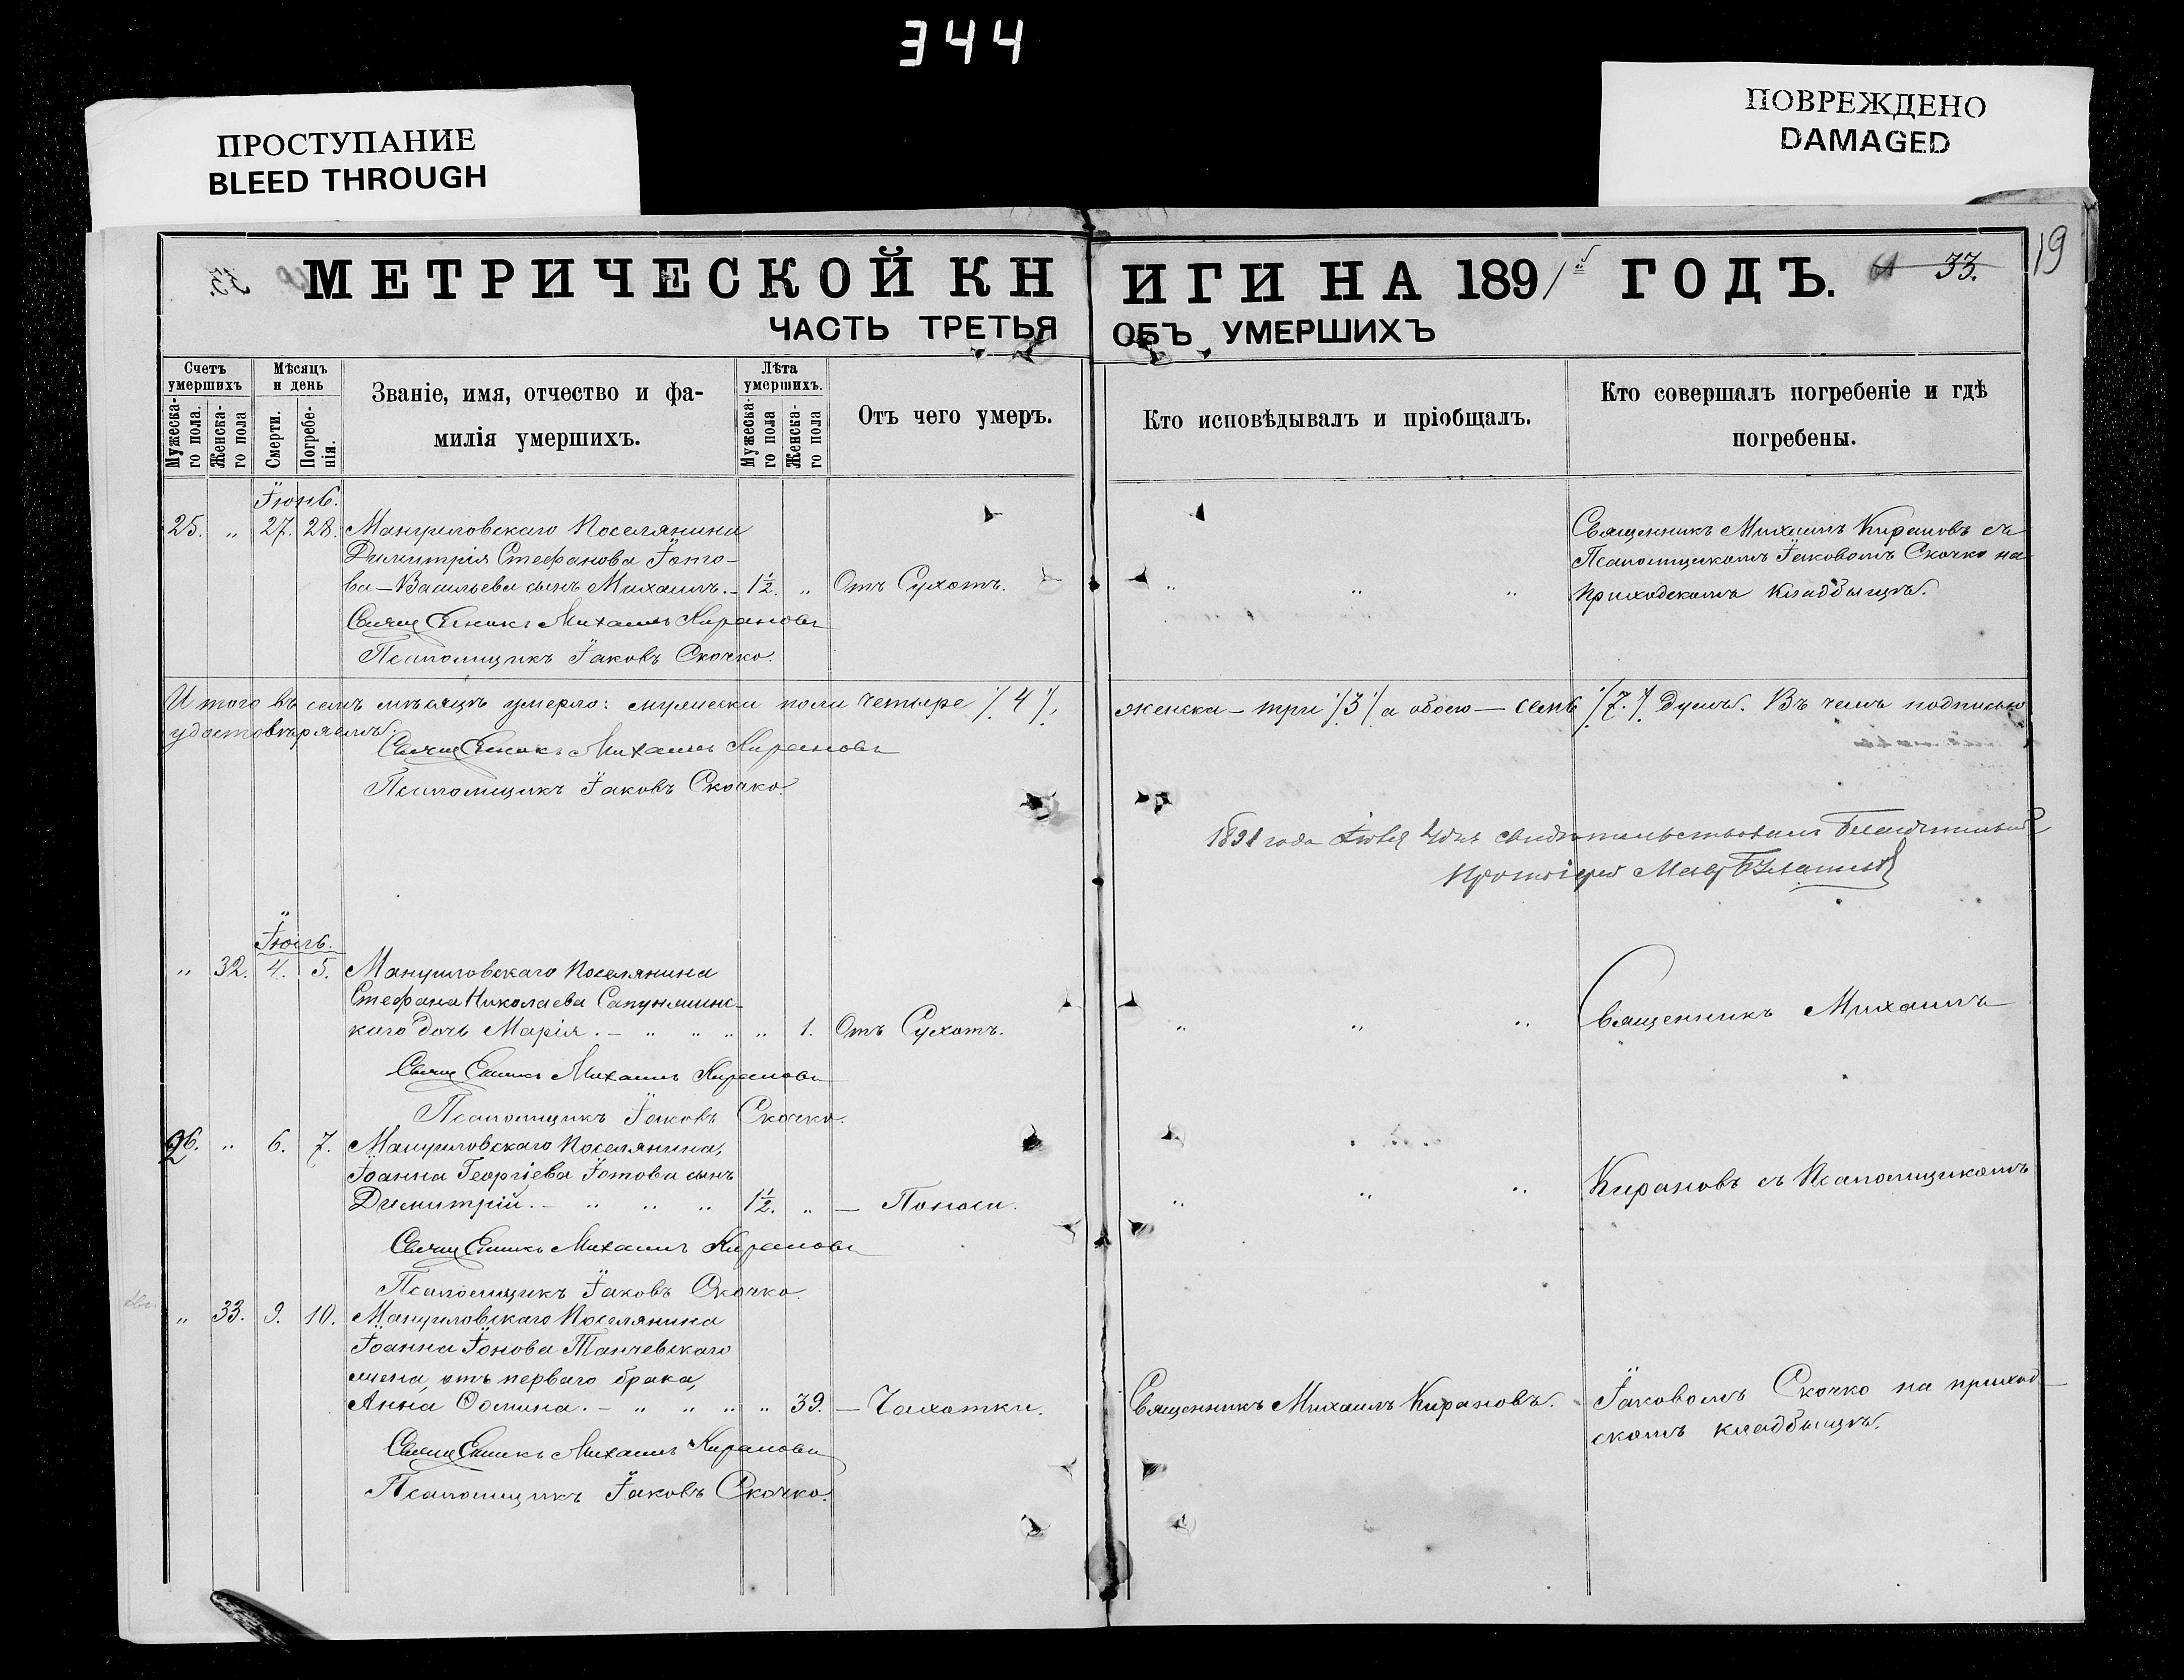 344
ПРОСТУПАНИЕ
BLEED THROUGH
ПОВРЕЖДЕНО
DAMAGED
МЕТРИЧЕСКОЙ КН
ИГИ НА 1891 ГОДЪ.
33.
19
ЧАСТЬ ТРЕТЬЯ
ОБЪ УМЕРШИХЪ
Счетъ умершихъ
Мужеска-го пола.
Женска-го пола
Мѣсяцъ и день
Смерти.
Погребе-нія.
Званіе, имя, отчество и фа-
милія умершихъ.
Лѣта умершихъ.
Мужеска-го пола
Женска-го пола
Отъ чего умеръ.
Кто исповѣдывалъ и пріобщалъ.
Кто совершалъ погребеніе и гдѣ
погребены.
Іюнь.
25. „ 27. 28. Мануиловскаго Поселянина
Димитрія Стефанова Іото-
ва-Васильева сынъ Михаилъ. - 1½. „ Отъ Сухотъ. „ „ „
Священникъ Михаилъ Кирановъ
Псаломщикъ Іаковъ Скочко.
Священникъ Михаилъ Кирановъ съ
Псаломщикомъ Іаковомъ Скочко на
приходскомъ кладбищѣ.
Итого въ семъ мѣсяцѣ умерло: мужеска пола четыре /4/, женска - три /3/ а обоего - семь /7./ душъ. Въ чемъ подписью
удостовѣряемъ.
Священникъ Михаилъ Кирановъ
Псаломщикъ Іаковъ Скочко.
1891 года Іюля дня свидѣтельствовалъ Благочинный
Протоіерей
Іюль.
„ 32. 4. 5. Мануиловскаго Поселянина
Стефана Николаева Сапунжинс-
каго дочь Марія. - „ „ „ „ 1. Отъ Сухотъ. „ „ „
Священникъ Михаилъ Кирановъ
Псаломщикъ Іаковъ Скочко.
Священникъ Михаилъ
26. „ 6. 7. Мануиловскаго Поселянина,
Іоанна Георгіева Іотова сынъ
Димитрій. - „ „ „ 1½. „ — Поноса. „ „ „
Священникъ Михаилъ Кирановъ
Псаломщикъ Іаковъ Скочко.
Кирановъ съ Псаломщикомъ
„ 33. 9. 10. Мануиловскаго Поселянина
Іоанна Іонова Танчевскаго
жена, отъ перваго брака,
Анна Ѳомина. - „ „ „ „ 39. — Чахотки. Священникъ Михаилъ Кирановъ.
Священникъ Михаилъ Кирановъ
Псаломщикъ Іаковъ Скочко.
Іаковомъ Скочко на приход-
скомъ кладбищѣ.